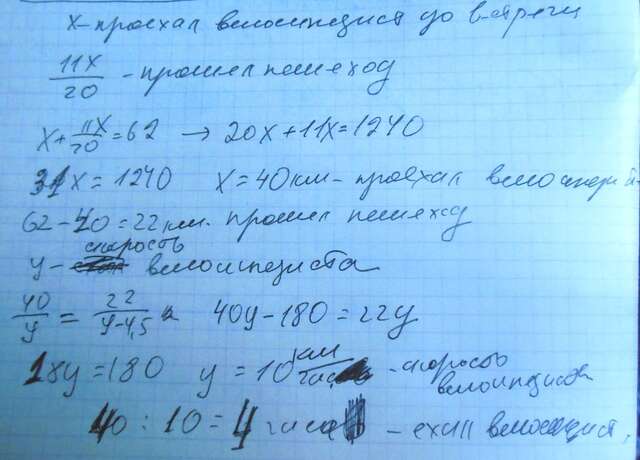 x - проехал велосипедист до встречи
11x/20 - прошел пешеход
x + 11x/20 = 62 → 20x + 11x = 1240
31x = 1240 x = 40 км - проехал велосипедист
62 - 40 = 22 км. прошел пешеход
y - скорость велосипедиста
40/y = 22/y-4,5 40y - 180 = 22y
18y = 180 y = 10 км/час - скорость велосипедиста
40 : 10 = 4 часа - ехал велосипедист.